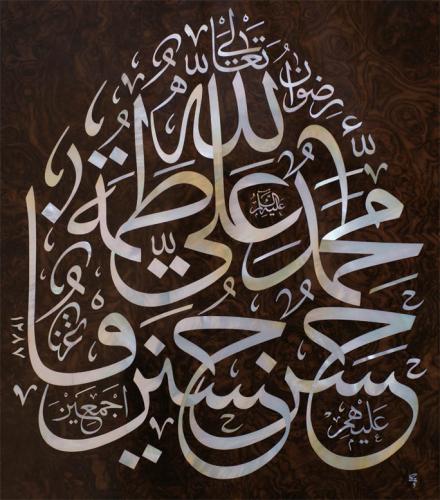 رضوان الله تعالى
محمد علي فاطمة
عليه السلام
حسن حسين
عليهم اجمعين
١٢٨٧